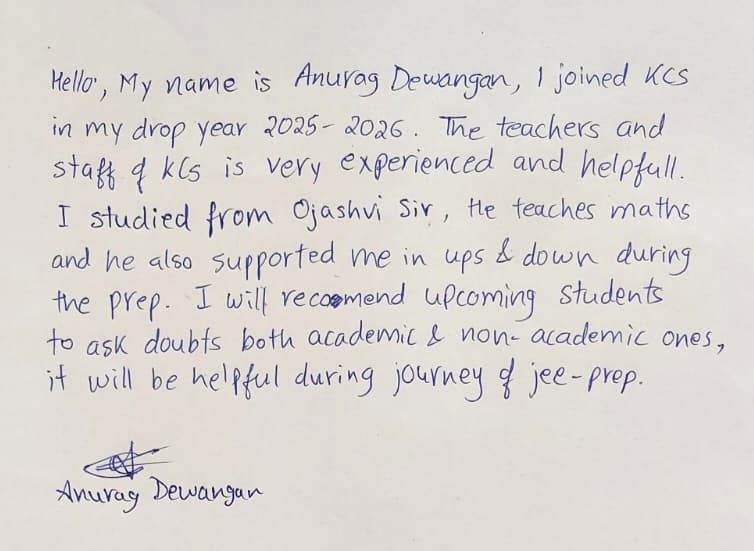 Hello, My name is Anurag Dewangan, I joined KCS
in my drop year 2025-2026. The teachers and
staff of KCS is very experienced and helpfull.
I studied from Ojashvi Sir, He teaches maths
and he also supported me in ups & down during
the prep. I will recoomend upcoming students
to ask doubts both academic & non-academic ones,
it will be helpful during journey of jee-prep.
Anurag Dewangan